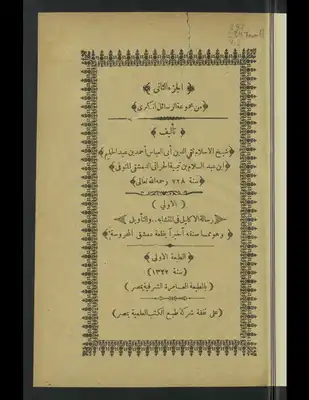 ﴿ الجزء الثانى ﴾
﴿ من مجموعة الرسائل الكبرى ﴾
﴿ تأليف ﴾
﴿ شيخ الاسلام تقي الدين أبى العباس أحمد بن عبد الحليم ﴾
﴿ ابن عبد السلام بن تيمية الحرانى الدمشقى المتوفى ﴾
﴿ سنة ٧٢٨ رحمه الله تعالى ﴾
( الاولى )
رسالة الاكليل فى المتشابه والتأويل
﴿ وهو مما صنفه أخيراً بقلعة دمشق المحروسة ﴾
﴿ الطبعة الاولى ﴾
( سنة ١٣٢٣ )
( بالمطبعة العامرة الشرفية بمصر )
( على نفقة شركة طبع الكتب العلمية بمصر )